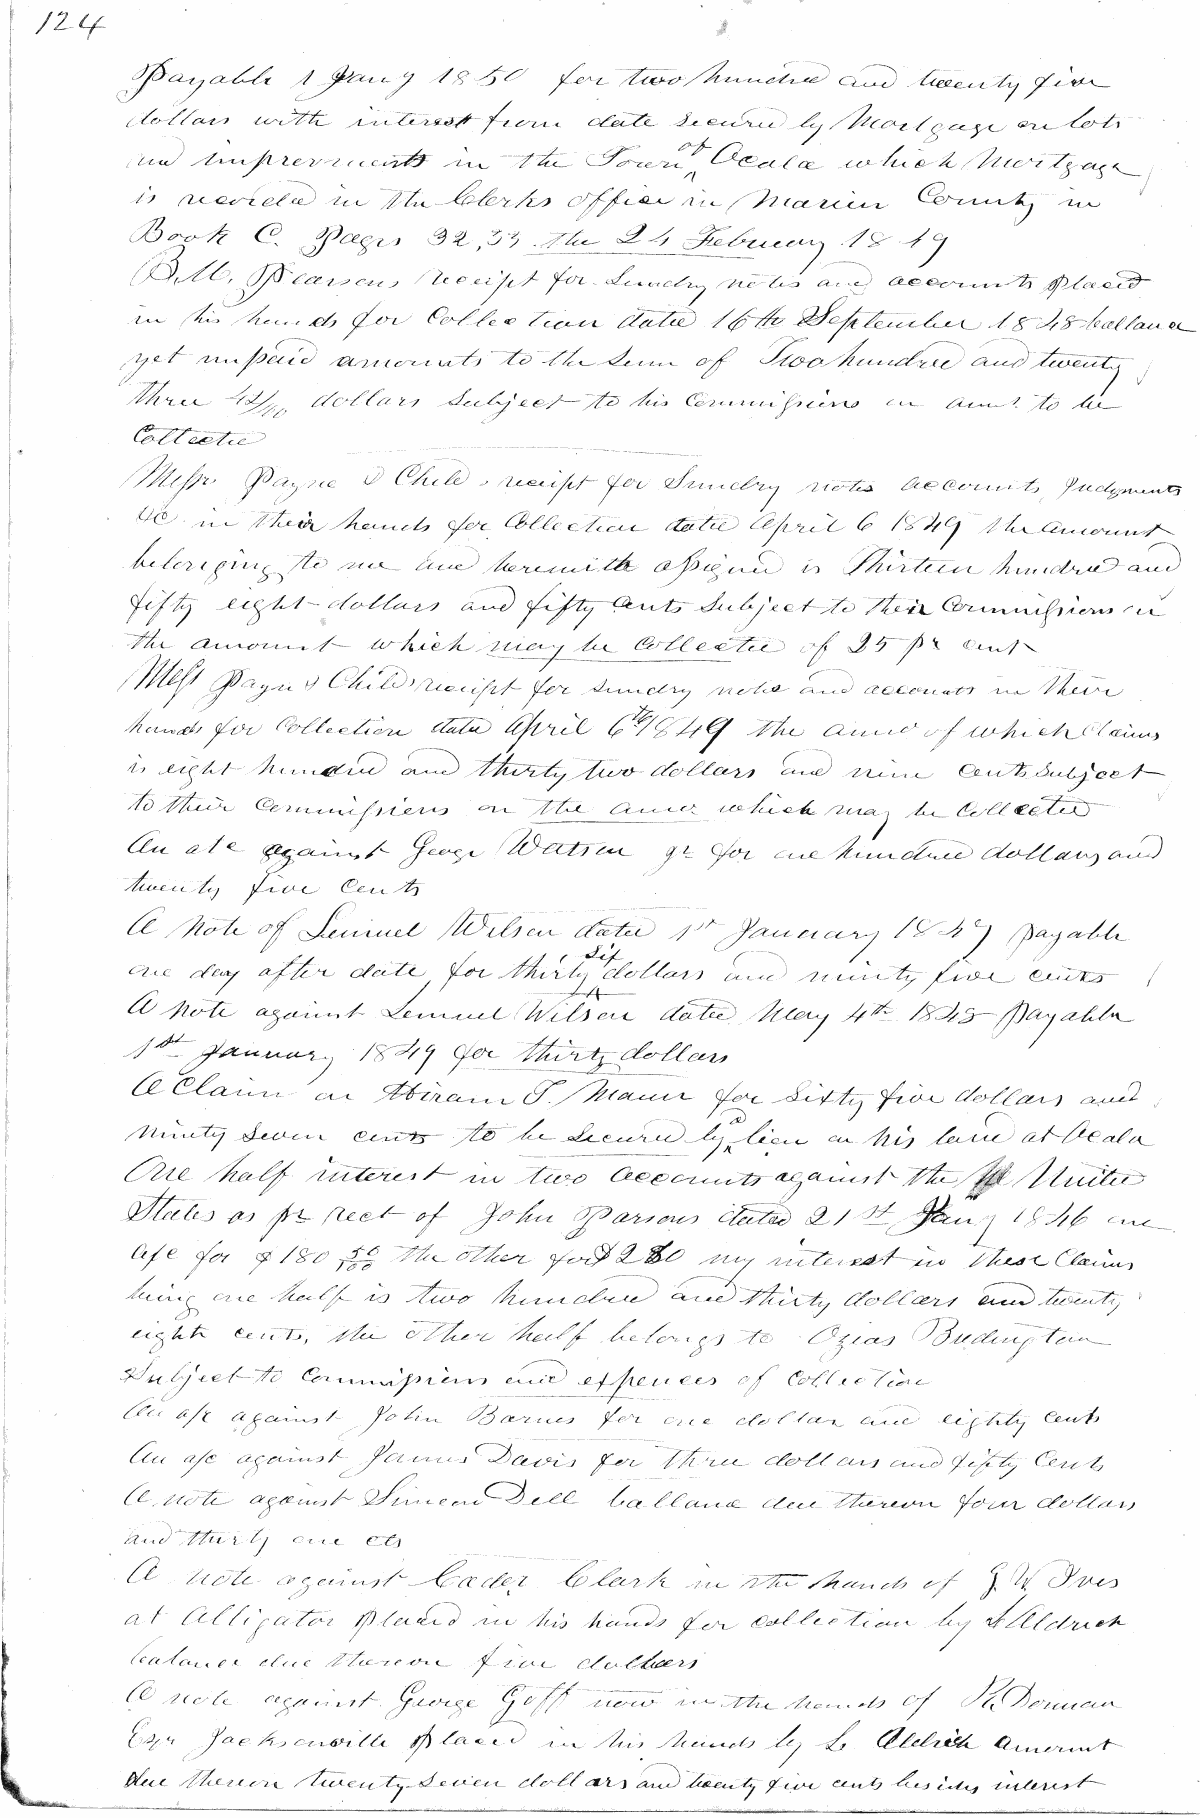 124
Payable 1 Jany 1850 for two hundred and twenty five
dollars with interest from date secured by Mortgage on lots
and improvements in the Town of Ocala which Mortgage
is recorded in the Clerks office in Marion County in
Book C. Pages 32, 33 the 24 February 1849
B. M. Pearsons receipt for Sundry notes and accounts placed
in his hands for Collection dated 16th September 1848 ballance
yet unpaid amounts to the sum of Two hundred and twenty
three dollars Subject to his Commissions on amt to be
Collected
Messrs Payne & Childs receipt for Sundry notes accounts, Judgments
&c in their hands for Collection dated April 6 1849 the amount
belonging to me and herewith assigned is Thirteen hundred and
fifty eight dollars and fifty cents Subject to their Commissions on
the amount which may be Collected of 25 pr cent
Mess Payn & Childs receipt for sundry notes and accounts in their
hands for Collection dated April 6th 1849 the amo of which Claims
is eight hundred and thirty two dollars and nine cents subject
to their Commissions on the amo which may be Collected
An a/c against George Watson for one hundred dollars and
twenty five Cents
A Note of Lemuel Wilson dated 1st January 1847 payable
one day after date for thirty six dollars and ninty five cents
A Note against Lemuel Wilson dated May 4th 1848 Payable
1st January 1849 for thirty dollars
A Claim on Hiram T. Mann for Sixty five dollars and
ninety Seven cents to be secured by a lien on his land at Ocala
One half interest in two accounts against the United
States as pr rect of John Parsons dated 21st Jany 1846 one
a/c for $180 56/100 the other for $280 my interest in these Claims
being one half is two hundred and thirty dollars and twenty
eight cents, the other half belongs to Ozias Budington
Subject to Commissions and expences of Collection
An a/c against John Barnes for one dollar and eighty cents
An a/c against James Davis for three dollars and fifty Cents
A note against Simeon Dell ballance due thereon four dollars
and thirty one cts
A note against Cader Clark in the hands of W Ives
at Alligator placed in his hands for collection by L Aldrich
balance due thereon five dollars
A note against George Goff now in the hands of Dorman
Esqr Jacksonville placed in his hands by L Aldrich Amount
due thereon twenty Seven dollars and twenty five cents besides interest